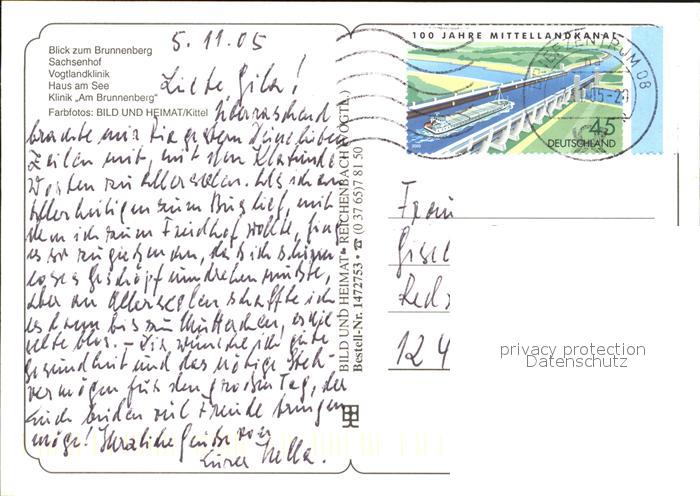 5.11.05
Blick zum Brunnenberg
Sachsenhof
Vogtlandklinik
Haus am See
Klinik „Am Brunnenberg"
Farbfotos: BILD UND HEIMAT/Kittel
Liebe Gisa!
Überraschend
brachte mir gestern Deine lieben
Zeilen mit, mit den
Worten zu Allerseelen. Als ich an
Allerheiligen zum Bus lief, mit
dem ich zum Friedhof wollte, fing
es so zu giessen an, daß ich schirm-
loses Geschöpf umdrehen mußte,
aber an Allerseelen schaffte ich
es dann bis zu Mütterchen,
– Dir wünsche ich gute
Gesundheit und das nötige Steh-
vermögen für den großen Tag, der
Euch beiden viel Freude bringen
möge! Herzliche Grüße von
Eurer Hella.
BILD UND HEIMAT • REICHENBACH (VOGTL.)
Bestell-Nr. 1472753 • ☎ (0 37 65) 7 81 50
100 JAHRE MITTELLANDKANAL
45
DEUTSCHLAND
BRIEFZENTRUM 08
Frau
Gisel
124
privacy protection
Datenschutz